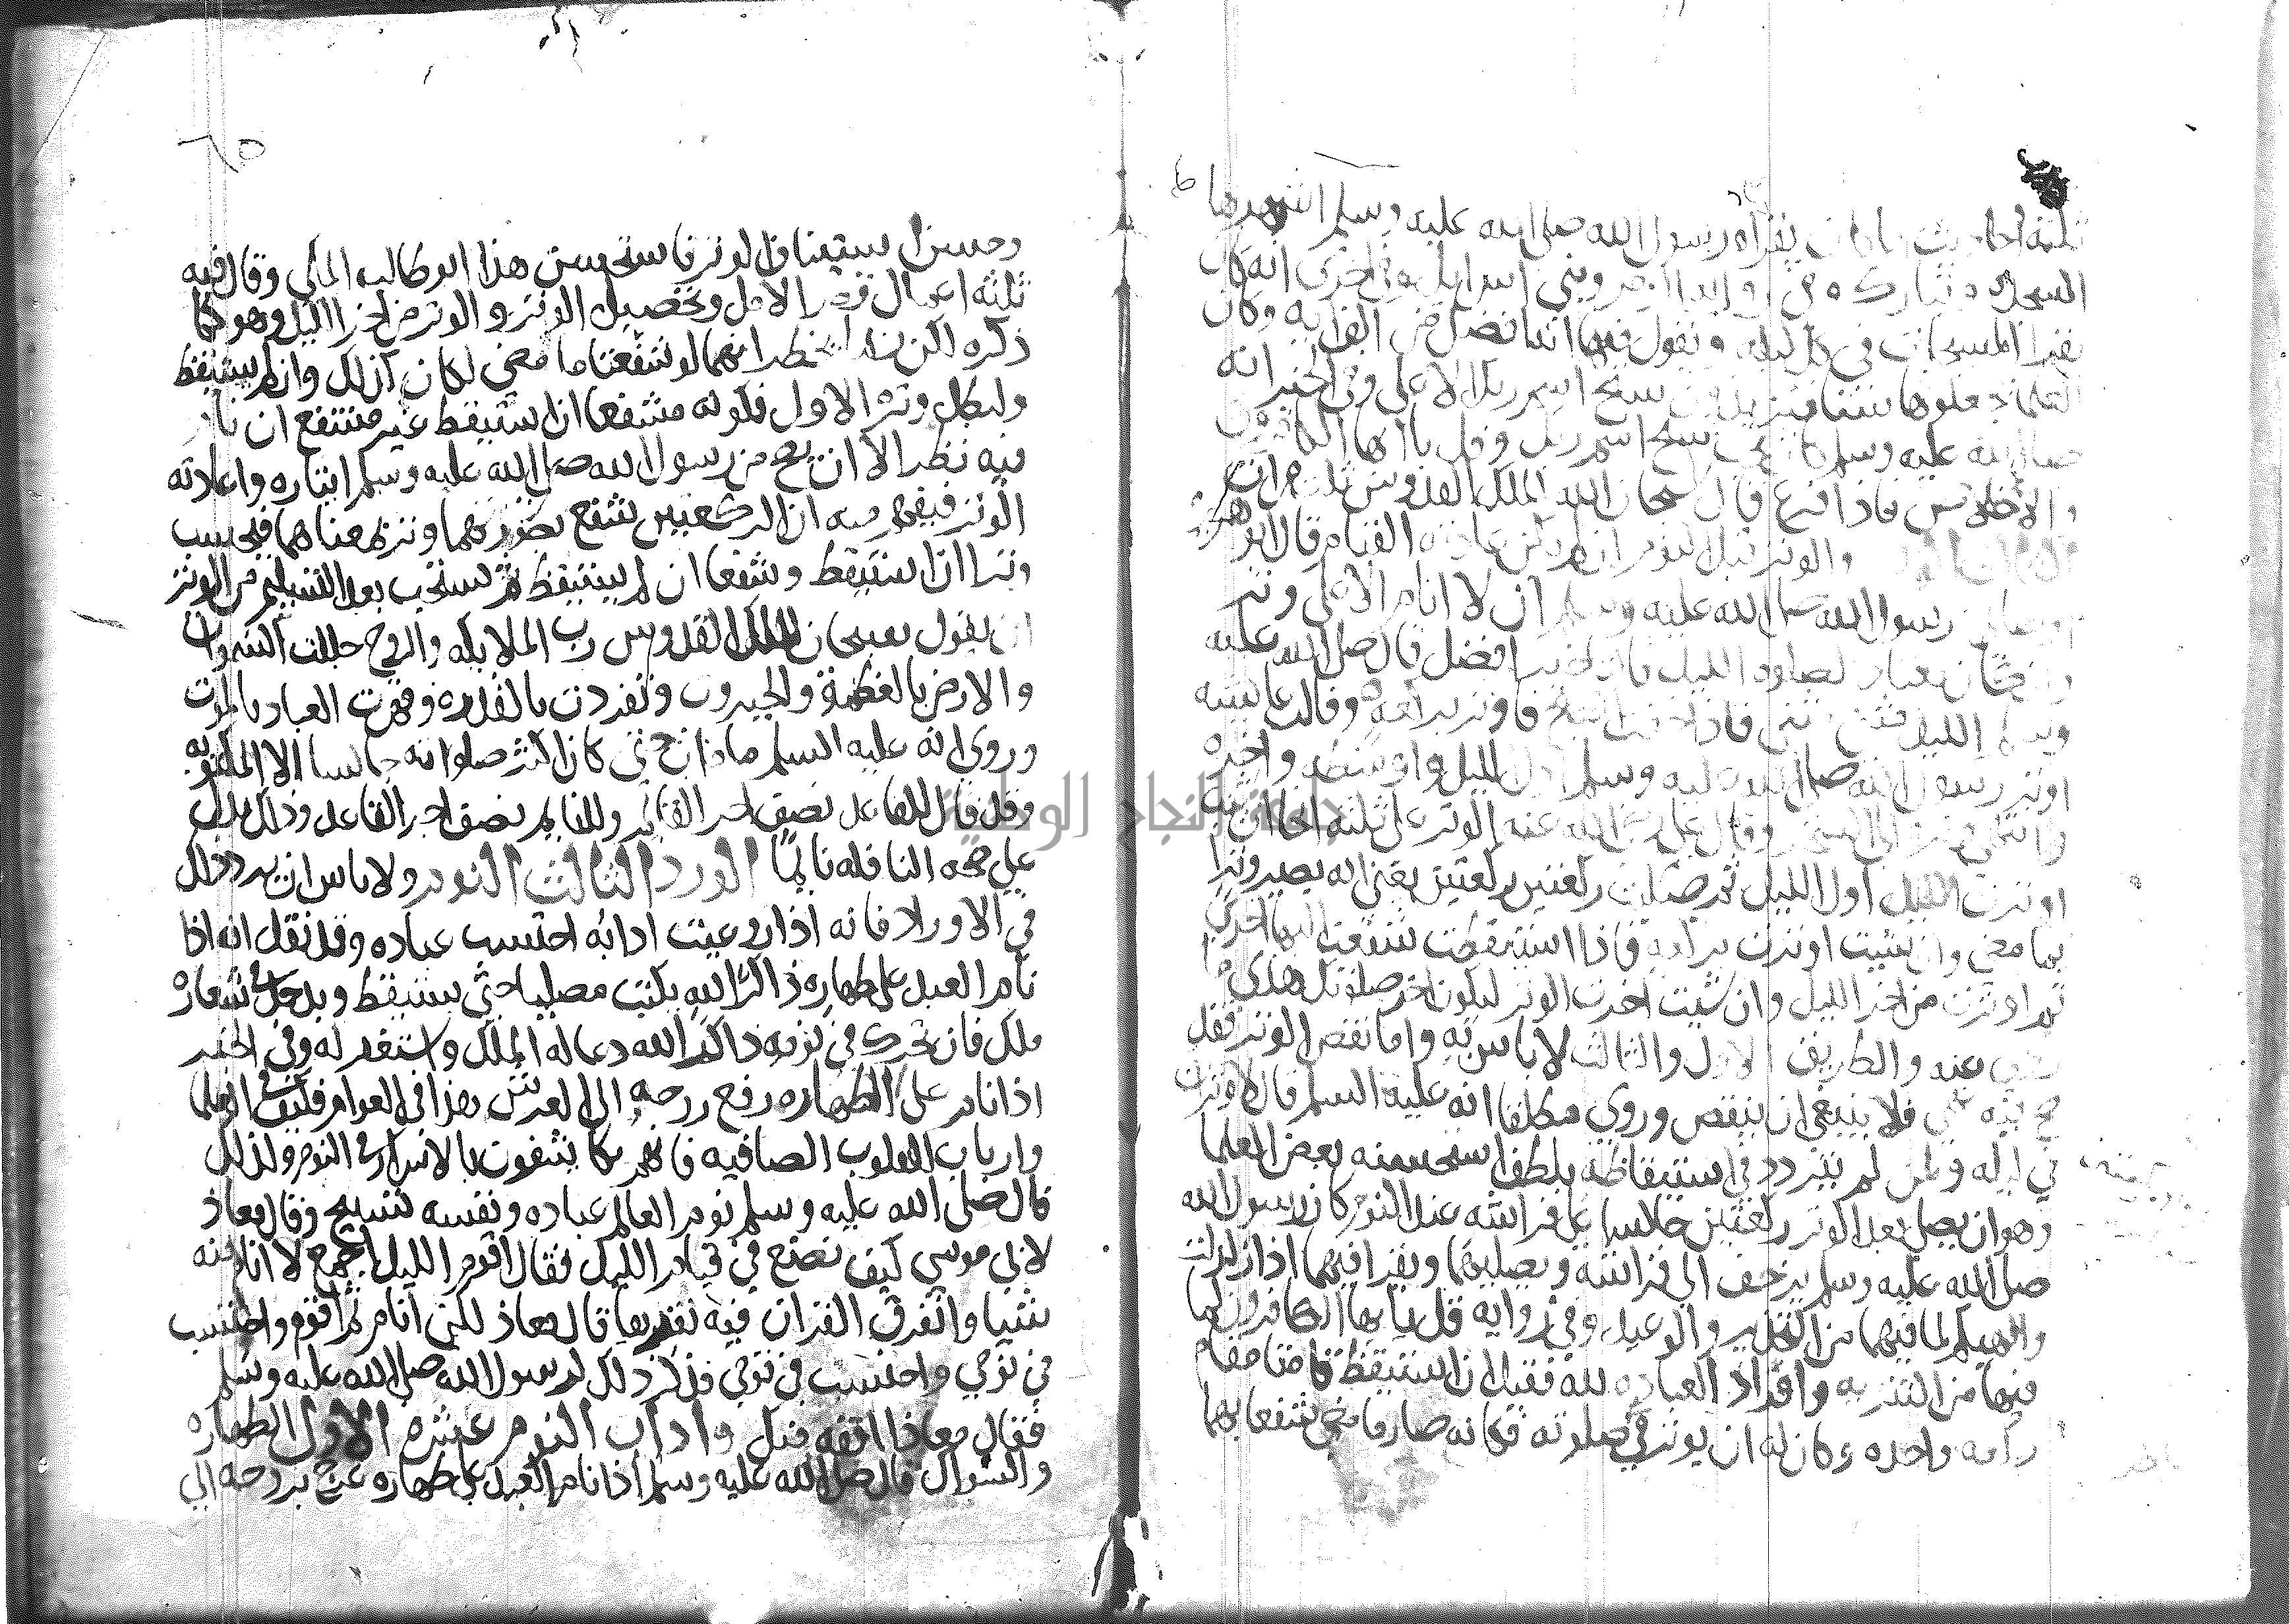 ثلثة احاديث ما كان يقراه رسول الله صلى الله عليه وسلم اشهرها
السجده وتبارك والزمر وبني اسرايل وفي اخرى انه كان
يقرا المسبحات في كل ليله ويقول فيها ايه افضل من الف ايه وكان
العلما يجعلونها ستا فيزيدون سبح اسم ربك الاعلى وفي الخبر انه
صلى الله عليه وسلم كان يحب سبح اسم ربك وقل يا ايها الكافرون
والاخلاص فاذا فرغ قال سبحان الله الملك القدوس ثلث مرات
والوتر قبل النوم ان لم يكن عادته القيام قال ابو هريره
اوصاني رسول الله صلى الله عليه وسلم ان لا انام الا على وتر
وان كان معتادا لصلوة الليل فالتاخير افضل قال صلى الله عليه
وسلم صلاة الليل مثنى مثنى فاذا خفت الصبح فاوتر بركعه وقالت عايشه
اوتر رسول الله صلى الله عليه وسلم اول الليل واوسطه واخره
وانتهى وتره الى السحر وقال علي رضي الله عنه الوتر على ثلثة انحا ان شيت
اوترت الليل اول الليل ثم صليت ركعتين ركعتين يعني انه يصير وترا
بما مضى وان شيت اوترت بركعه فاذا استيقظت شفعت اليها اخرى
ثم اوترت من اخر الليل وان شيت اخرت الوتر ليكون اخر صلوتك هذا ما
روي عنه والطريق الاول والثالث لا باس به واما نقض الوتر فقد
صح فيه نهي فلا ينبغي ان ينقض وروي مطلقا انه عليه السلم قال لا وتران
في ليله ولمن لم يتردد في استيقاظه بلطف استحسنه بعض العلما
وهو ان يصلي بعد الوتر ركعتين جالسا على فراشه عند النوم كان رسول الله
صلى الله عليه وسلم يزحف الى فراشه ويصليهما ويقرا فيهما اذا زلزلت
والهيكم لما فيهما من التحذير والوعيد وفي روايه قل يا ايها الكافرون لما
فيها من التنزيه وافراد العباده لله فقيل ان استيقظ قامتا مقام
ركعه واحده وكان له ان يوتر في صلوته فكانه صار ما مضى شفعا بهما
٦٥
وحسن استيناف الوتر فاستحسن هذا ابو طالب المكي وقال فيه
ثلثة اعمال قصر الامل وتحصيل الوتر والوتر من اخر الليل وهو كما
ذكره لكن يخطر انهما لو شفعتا ما مضى لكان كذلك وان لم يستيقظ
ولبطل وتره الاول فكونه مشفعا ان استيقظ غير مشفع ان نام
فيه نظر الا ان يصح من رسول الله صلى الله عليه وسلم ايتاره واعادته
الوتر فيفهم منه ان الركعتين شفع بصورتهما وتر بمعناهما فيحسب
وترا ان استيقظ وشفعا ان لم يستيقظ ثم يستحب بعد التسليم من الوتر
ان يقول سبحان الملك القدوس رب الملايكه والروح جللت السموات
والارض بالعظمة والجبروت وتفردت بالقدره وقهرت العباد بالموت
وروي انه عليه السلم ما مات حتى كان اكثر صلواته جالسا الا المكتوبه
وقد قال للقاعد نصف اجر القايم وللنايم نصف اجر القاعد وذلك يدل
على صحه النافله نايما الورد الثالث النوم ولا باس ان يرد ذلك
في الاوراد فانه اذا روعيت ادابه احتسب عباده وقد نقل انه اذا
نام العبد على طهاره ذاكرا لله يكتب مصليا حتى يستيقظ ويدخل في شعاره
ملك فان تحرك في نومه ذاكرا لله دعا له الملك واستغفر له وفي الخبر
اذا نام على الطهاره رفع روحه الى العرش هذا في العوام فكيف في العلما
وارباب القلوب الصافيه فانهم يكاشفون بالاسرار في النوم ولذلك
قال صلى الله عليه وسلم نوم العالم عباده ونفسه تسبيح وقال معاذ
لابي موسى كيف تصنع في قيام الليل فقال اقوم الليل اجمع لا انام منه
شيا واتفوق القران فيه تفوقا قال معاذ لكني انام ثم اقوم واحتسب
في نومي واحتسب في قومي فذكر ذلك لرسول الله صلى الله عليه وسلم
فقال معاذ افقه منك واداب النوم عشره الاول الطهاره
والسواك قال صلى الله عليه وسلم اذا نام العبد على طهاره عرج بروحه الى
جامعة النجاح الوطنية